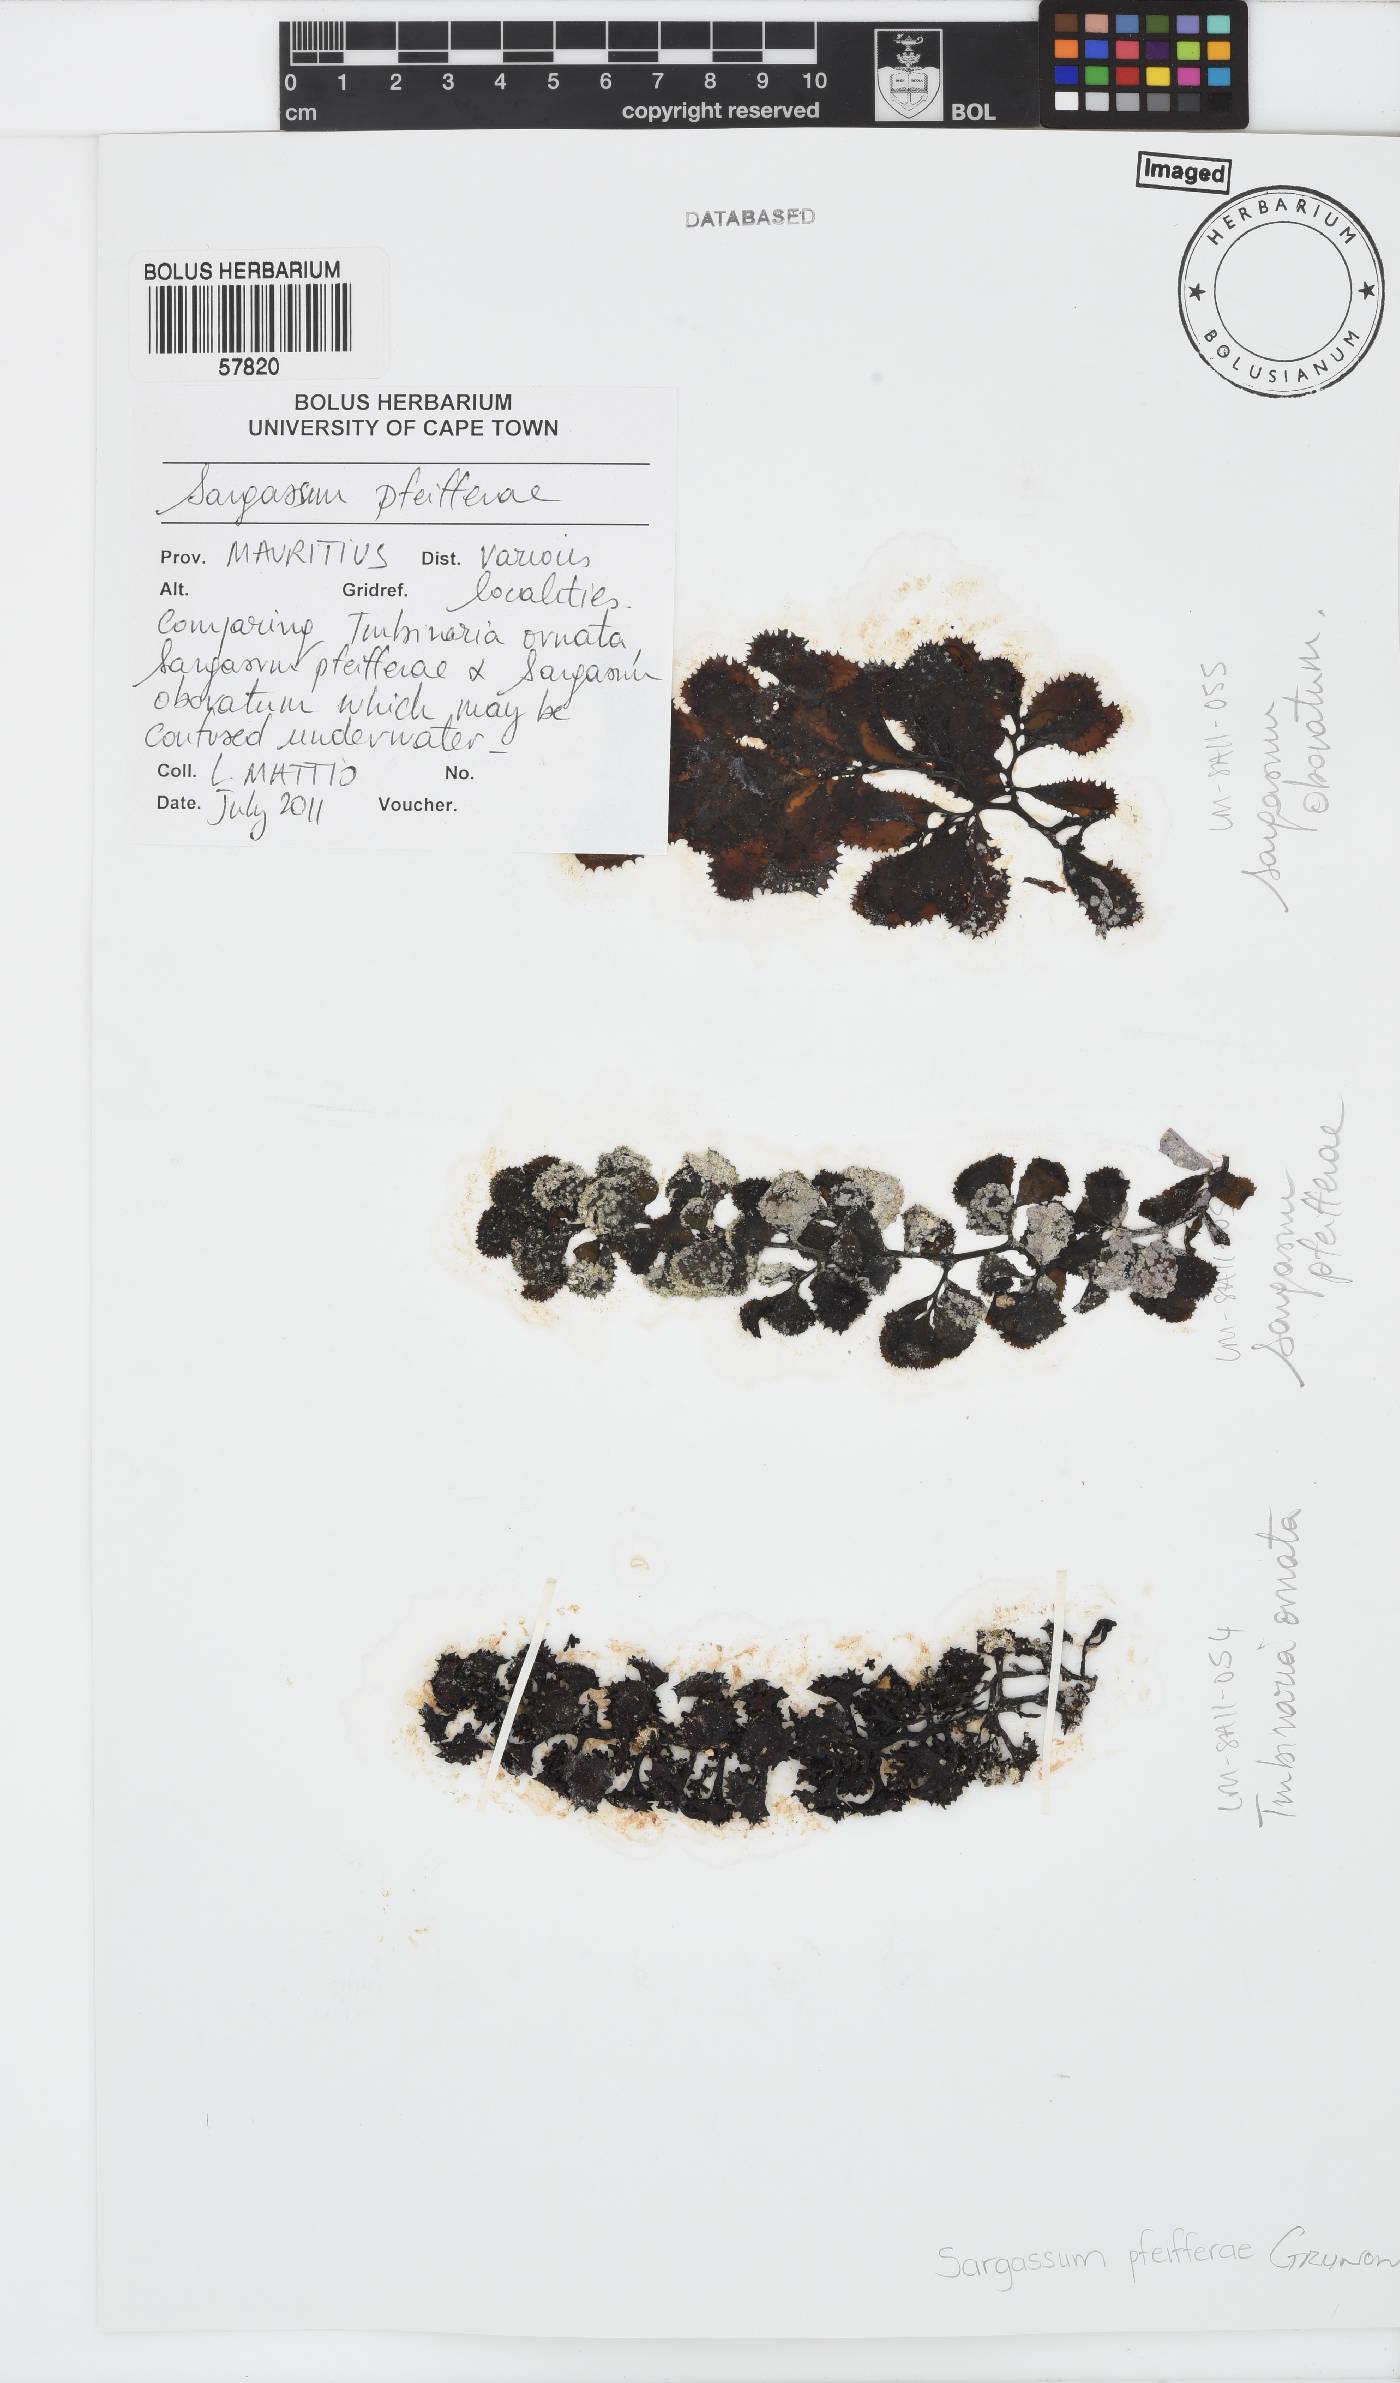 0 1 2 3 4 5 6 7 8 9 10
cm
copyright reserved
BOL
Imaged
HERBARIUM
BOLUSIANUM
DATABASED
BOLUS HERBARIUM
57820
BOLUS HERBARIUM
UNIVERSITY OF CAPE TOWN
Sargassum pfeifferae
Prov. MAURITIUS Dist. Various
Alt. Gridref. localities.
Comparing Turbinaria ornata,
Sargassum pfeifferae & Sargassum
obovatum which may be
confused underwater -
Coll. L. MATTIO No.
Date. July 2011 Voucher.
LM-SA11-055
Sargassum
obovatum.
LM-SA11-
Sargassum
pfeifferae
LM-SA11-054
Turbinaria ornata
Sargassum pfeifferae Grunow